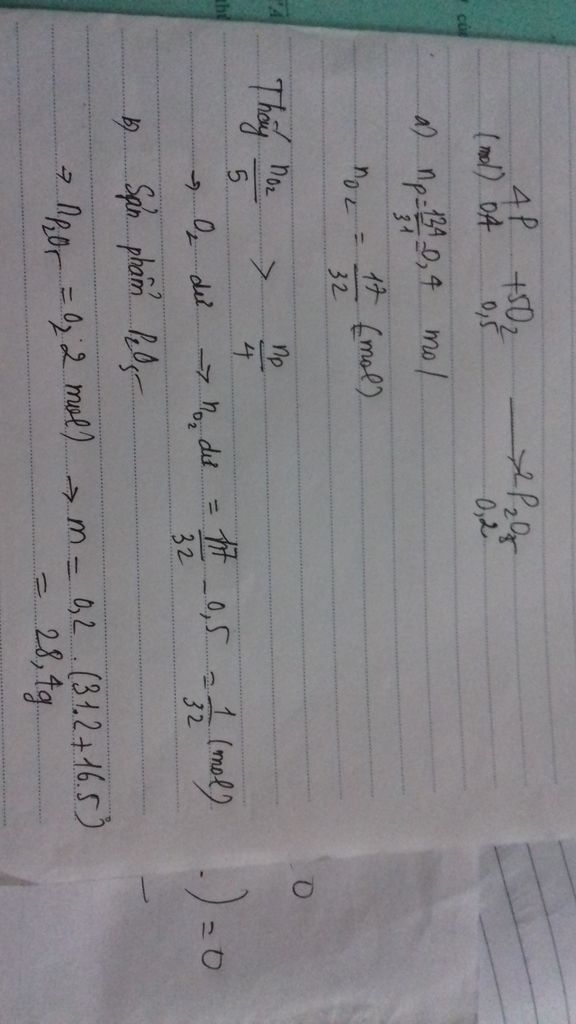 4P + 5O₂ ⟶ 2P₂O₅
(mol) 0,4 0,5 0,2
a) nP = 12,4/31 = 0,4 mol
nO₂ = 17/32 (mol)
Thấy nO₂/5 > nP/4
→ O₂ dư → nO₂ dư = 17/32 - 0,5 = 1/32 (mol)
b) Sản phẩm P₂O₅
→ nP₂O₅ = 0,2 mol) → m = 0,2 . (31.2 + 16.5)
= 28,4g
0
.) = 0